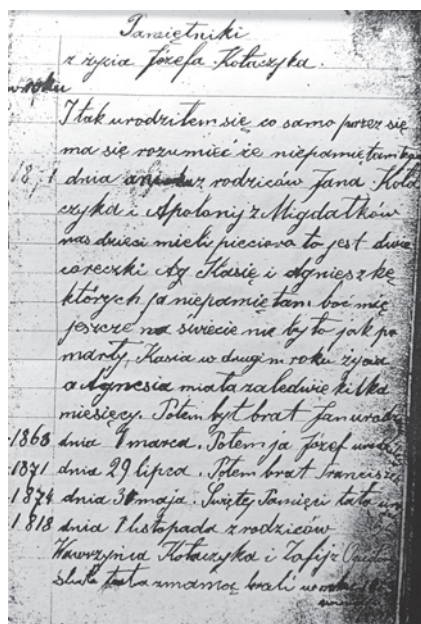 Pamiętniki
z życia Józefa Kołaczyka.
w roku
I tak urodziłem się co samo przez się
ma się rozumieć że niepamiętam
dnia z rodziców Jana Koła
czyka i Apolony z Migdałków
nas dzieci mieli pięcioro to jest dwie
córeczki Ag Kasię i Agnieszkę
których ja niepamiętam boć mię
jeszcze na świecie nie było jak po
marły, Kasia w drugim roku życia
a Agnesia miała zaledwie kilka
miesięcy. Potem był brat Jan urodz
1868 dnia 1 marca. Potem ja Józef
1871 dnia 29 lipca. Potem brat Francisz
1874 dnia 30 maja. Świętej Pamięci tata
1818 dnia 1 listopada z rodziców
Wawrzyńca Kołaczyka i Zofij z
ślub tata z mamą brali w